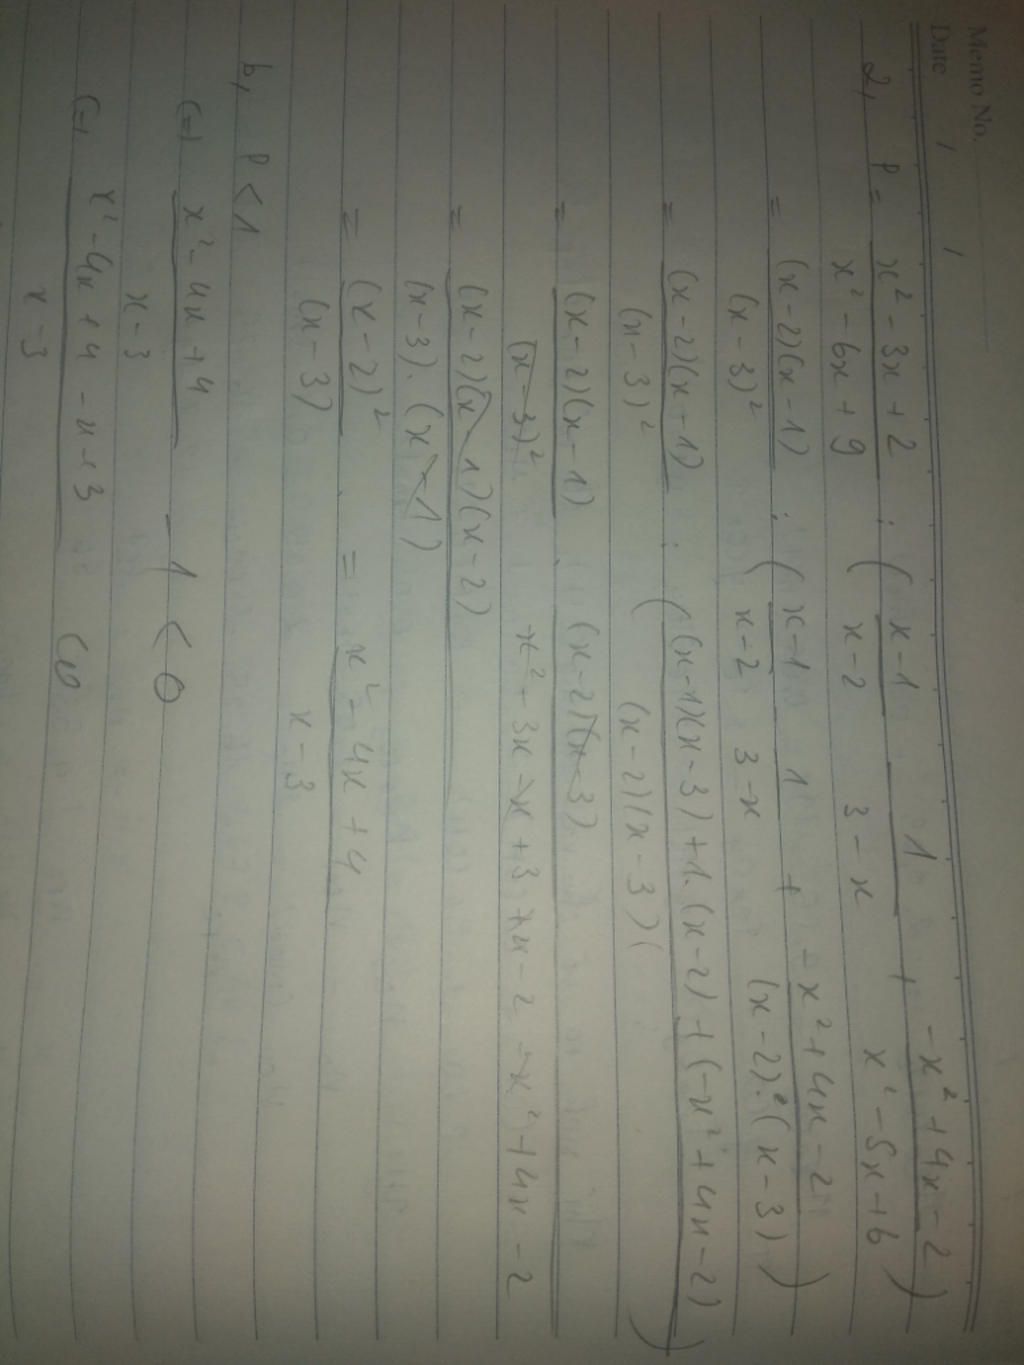 Memo No.
Date / /
2, P = x² - 3x + 2 / x² - 6x + 9 : ( x - 1 / x - 2 - 1 / 3 - x + -x² + 4x - 2 / x² - 5x + 6 )
= (x - 2)(x - 1) / (x - 3)² : ( x - 1 / x - 2 1 / 3 - x + -x² + 4x - 2 / (x - 2).(x - 3) )
= (x - 2)(x - 1) / (x - 3)² : ( (x - 1)(x - 3) + 1.(x - 2) + (-x² + 4x - 2) / (x - 2)(x - 3) )
= (x - 2)(x - 1) / (x - 3)² . (x - 2)(x - 3) / x² - 3x - x + 3 + x - 2 - x² + 4x - 2
= (x - 2)(x - 1)(x - 2) / (x - 3).(x - 1)
= (x - 2)² / (x - 3) = x² - 4x + 4 / x - 3
b, P < 1
(=) x² - 4x + 4 / x - 3 - 1 < 0
(=) x² - 4x + 4 - x + 3 / x - 3 < 0